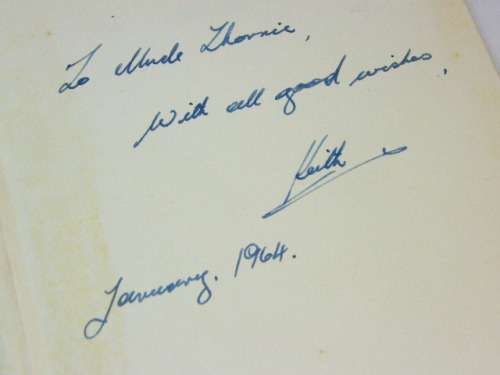 To Uncle Thornie,
With all good wishes,
Keith
January. 1964.